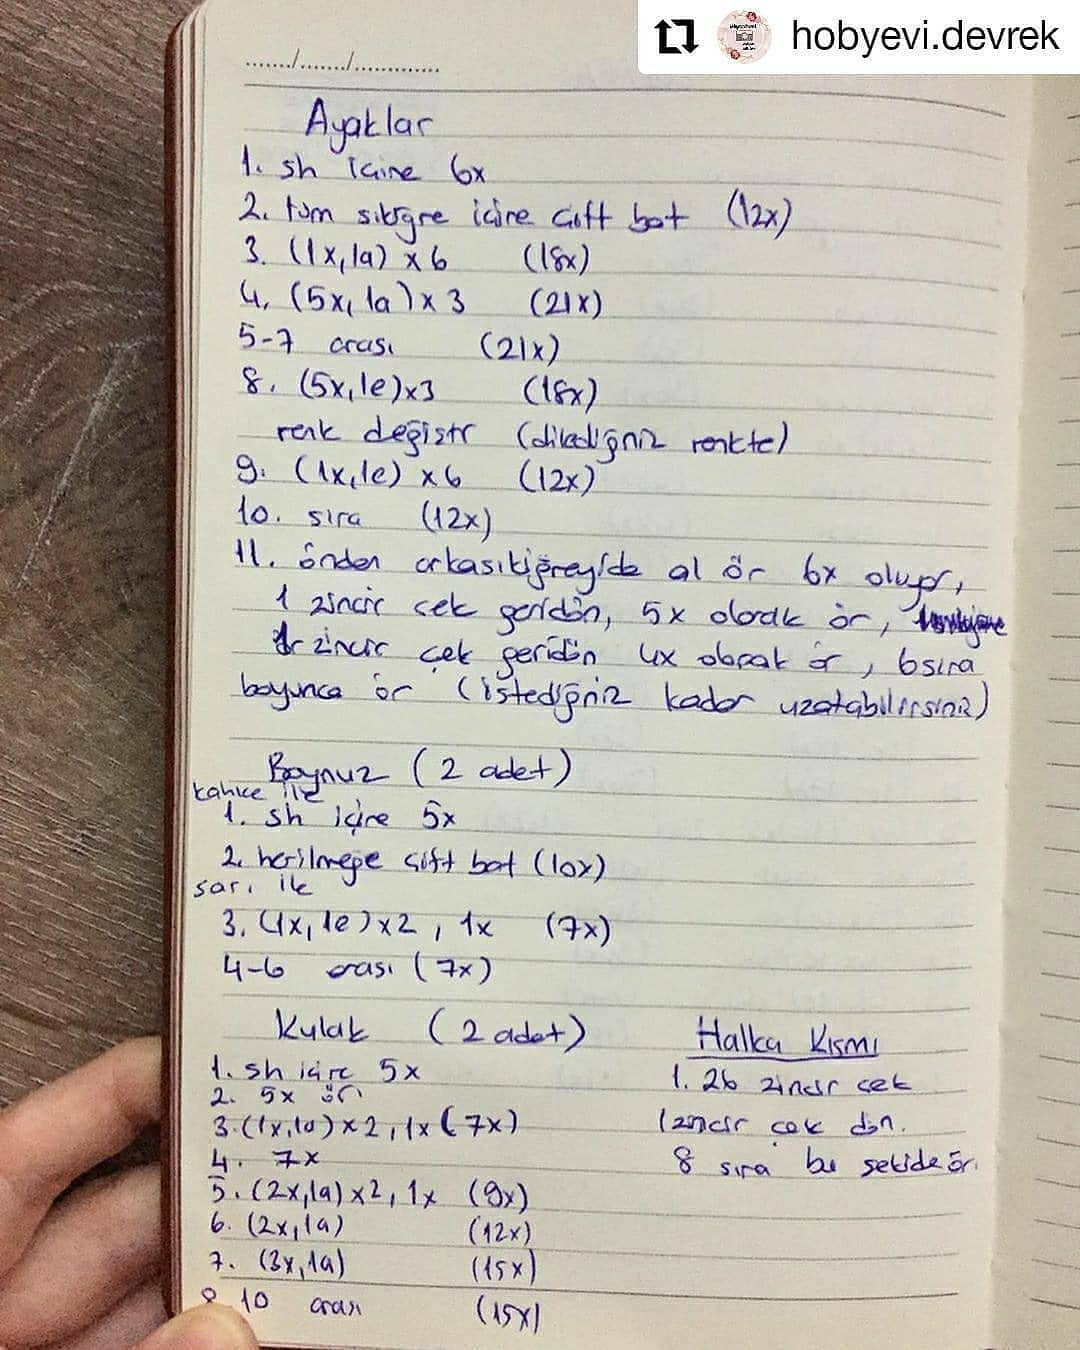 hobyevi.devrek
......./......./.............
Ayaklar
1. sh içine 6x
2. tüm sıkiğne içine çift bat (12x)
3. (1x,1a) x 6 (18x)
4. (5x,1a) x 3 (21x)
5-7 arası (21x)
8. (5x,1e)x3 (18x)
renk değiştr (dilediğniz renkte)
9. (1x,1e) x6 (12x)
10. sıra (12x)
11. önden al ör 6x oluyor,
1 zincir çek geridön, 5x olarak ör,
zincir çek geridön 4x olarak ör, 6sıra
boyunca ör (istediğniz kadar uzatabilirsiniz)
Boynuz (2 adet)
kahve ile
1. sh içine 5x
2. her ilmeğe çift bat (10x)
sarı ile
3. (1x,1e)x2, 1x (7x)
4-6 arası (7x)
Kulak (2 adet)
1. sh içine 5x
2. 5x ör
3.(1x,1a)x2,1x (7x)
4. 7x
5. (2x,1a)x2, 1x (9x)
6. (2x,1a) (12x)
7. (3x,1a) (15x)
8 10 arası (15x)
Halka Kısmı
1. 26 zincir çek
1 zincir çek dön.
8 sıra bu şekilde ör.